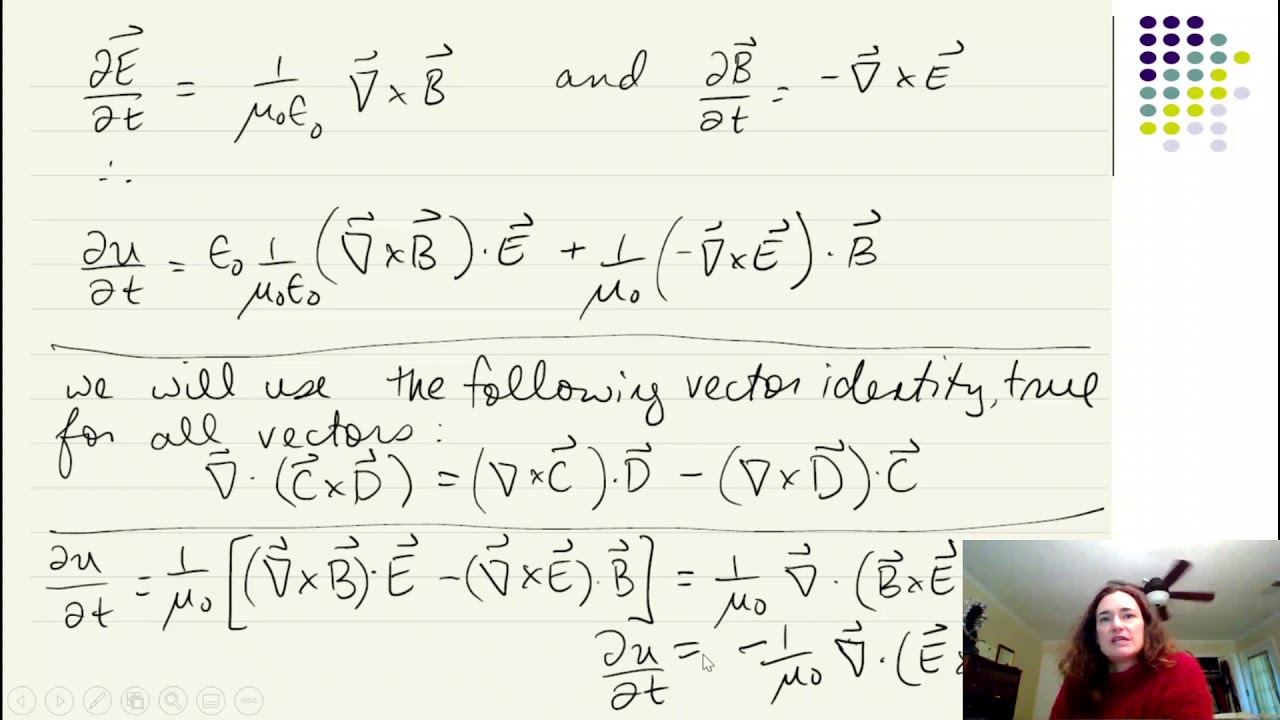 ∂E⃗/∂t = 1/μ₀ε₀ ∇⃗ × B⃗ and ∂B⃗/∂t = -∇⃗ × E⃗
∴
∂u/∂t = ε₀ 1/μ₀ε₀ (∇⃗ × B⃗) · E⃗ + 1/μ₀ (-∇⃗ × E⃗) · B⃗
we will use the following vector identity, true
for all vectors:
∇⃗ · (C⃗ × D⃗) = (∇ × C⃗) · D⃗ - (∇ × D⃗) · C⃗
∂u/∂t = 1/μ₀ [(∇⃗ × B⃗) · E⃗ - (∇⃗ × E⃗) · B⃗] = 1/μ₀ ∇⃗ · (B⃗ × E⃗
∂u/∂t = -1/μ₀ ∇⃗ · (E⃗ ×